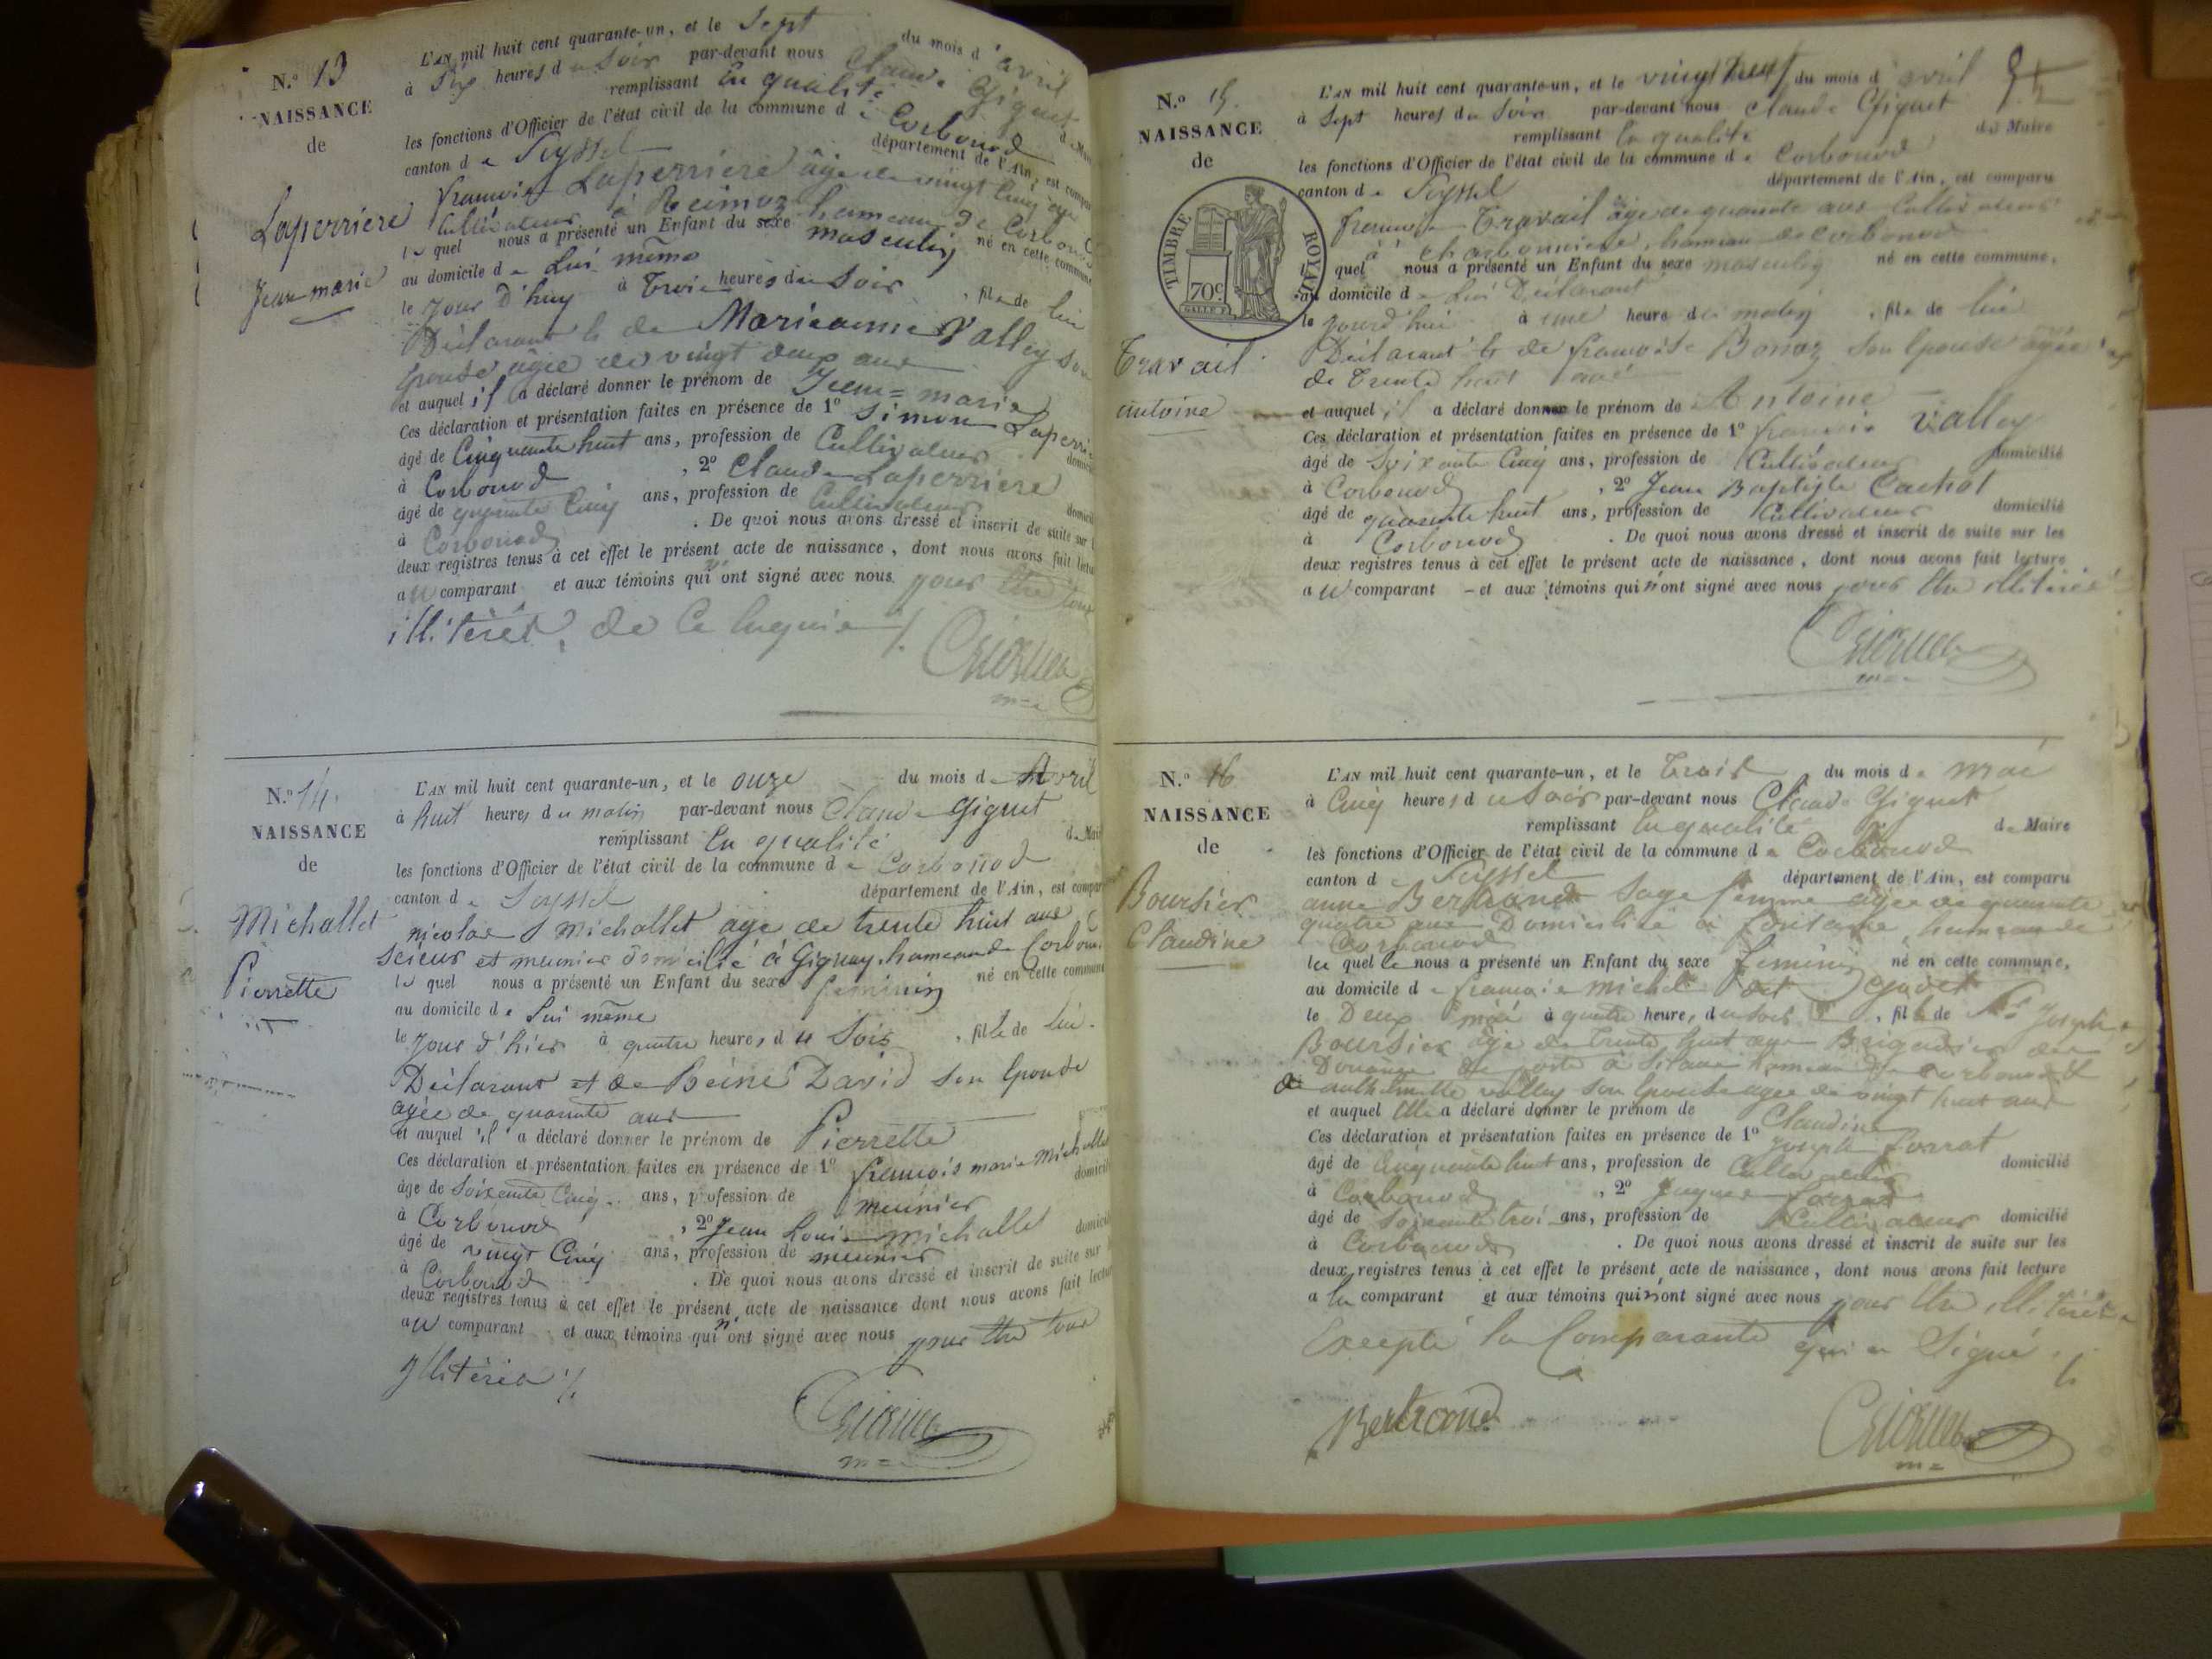 N.º 13
NAISSANCE
de
Laperriere
Jean marie
L'AN mil huit cent quarante-un, et le Sept du mois d'avril
à Six heures du Soir par-devant nous Claude Giguet
remplissant en qualité de Mai
les fonctions d'Officier de l'état civil de la commune de Corbonod
canton de Seyssel département de l'Ain, est compar
francois Laperriere âgé de vingt cinq ans
Cultivateur à Reimoz hameau de Corbonod
lequel nous a présenté un Enfant du sexe masculin né en cette commune
au domicile de Lui même
le Jour d'huy à Trois heures du Soir, fils de lui
Déclarant & de Marieanne Valley son
épouse âgée de vingt deux ans
et auquel il a déclaré donner le prénom de Jean=marie
Ces déclaration et présentation faites en présence de 1º Simon Laperri
âgé de Cinquante huit ans, profession de Cultivateur domicil
à Corbonod, 2º Claude Laperriere
âgé de quarante Cinq ans, profession de Cultivateur domicil
à Corbonod. De quoi nous avons dressé et inscrit de suite sur l
deux registres tenus à cet effet le présent acte de naissance, dont nous avons fait lectu
au comparant et aux témoins qui n'ont signé avec nous pour être tous
illitérés, de ce enquis /.
Giguet
m=e
N.º 14.
NAISSANCE
de
Michallet
Pierrette
L'AN mil huit cent quarante-un, et le onze du mois de Avril
à huit heures du matin par-devant nous Claude Giguet
remplissant en qualité de Mai
les fonctions d'Officier de l'état civil de la commune de Corbonod
canton de Seyssel département de l'Ain, est compar
nicolas Michallet age de trente huit ans
scieur et meunier domicilié à Gignay hameau de Corbon
lequel nous a présenté un Enfant du sexe feminin né en cette commune
au domicile de Lui même
le Jour d'hier à quatre heures du Soir, fille de Lui
Déclarant et de Reine David son épouse
agée de quarante ans
et auquel il a déclaré donner le prénom de Pierrette
Ces déclaration et présentation faites en présence de 1º francois marie Michallet
âgé de soixante Cinq ans, profession de meunier domicil
à Corbonod, 2º Jean Louis michallet
âgé de vingt Cinq ans, profession de meunier domicil
à Corbonod. De quoi nous avons dressé et inscrit de suite sur
deux registres tenus à cet effet le présent acte de naissance dont nous avons fait lectur
au comparant et aux témoins qui n'ont signé avec nous pour être tous
illitérés /.
Giguet
m=e
N.º 15.
NAISSANCE
de
TIMBRE ROYAL
70c
Travail
antoine
L'AN mil huit cent quarante-un, et le vingt neuf du mois d'avril
à Sept heures du Soir par-devant nous Claude Giguet
remplissant en qualité de Maire
les fonctions d'Officier de l'état civil de la commune de Corbonod
canton de Seyssel département de l'Ain, est comparu
francois Travail âgé de quarante ans Cultivateur
à charbonniere, hameau de Corbonod
lequel nous a présenté un Enfant du sexe masculin né en cette commune,
au domicile de Lui Déclarant
le jourd'hui à une heure du matin, fils de lui
Déclarant & de francoise Bonaz son épouse agée
de Trente huit ans
et auquel il a déclaré donner le prénom de Antoine
Ces déclaration et présentation faites en présence de 1º francois Valley
âgé de Soixante Cinq ans, profession de Cultivateur domicilié
à Corbonod, 2º Jean Baptiste Cachat
âgé de quarante huit ans, profession de Cultivateur domicilié
à Corbonod. De quoi nous avons dressé et inscrit de suite sur les
deux registres tenus à cet effet le présent acte de naissance, dont nous avons fait lecture
au comparant - et aux témoins qui n'ont signé avec nous pour être illitérés
Giguet
m=e
N.º 16
NAISSANCE
de
Boursier
Claudine
L'AN mil huit cent quarante-un, et le Trois du mois de mai
à Cinq heures du Soir par-devant nous Claude Giguet
remplissant en qualité de Maire
les fonctions d'Officier de l'état civil de la commune de Corbonod
canton de Seyssel département de l'Ain, est comparu
anne Bertrand Sage femme agée de quarante
quatre ans Domiciliée à fontaine, hameau de
Corbonod
laquelle nous a présenté un Enfant du sexe feminin né en cette commune,
au domicile de francois michel
le Deux mai à quatre heures du soir, fille de Joseph
Boursier âgé de Trente huit ans Brigadier des
Douanes de poste à Silans hameau de Corbonod &
de anthelmette valley son épouse agée de vingt huit ans
et auquel elle a déclaré donner le prénom de Claudine
Ces déclaration et présentation faites en présence de 1º Joseph Forrat
âgé de Cinquante huit ans, profession de Cultivateur domicilié
à Corbonod, 2º Jaques Forrat
âgé de Soixante trois ans, profession de Cultivateur domicilié
à Corbonod. De quoi nous avons dressé et inscrit de suite sur les
deux registres tenus à cet effet le présent acte de naissance, dont nous avons fait lecture
a la comparant et aux témoins qui n'ont signé avec nous pour être illitérés
Excepté la Comparante qui a Signé /.
Bertrand
Giguet
m=e